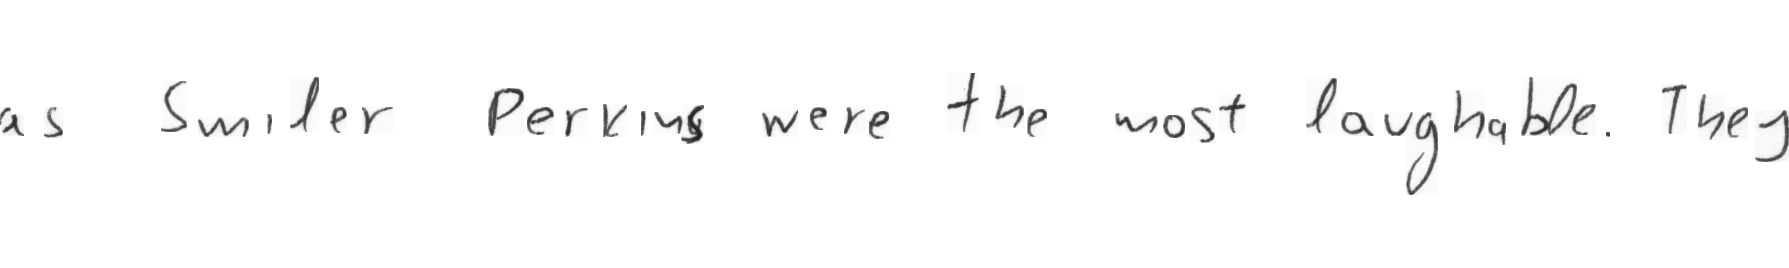 as Smiler Perkins were the most laughable. They